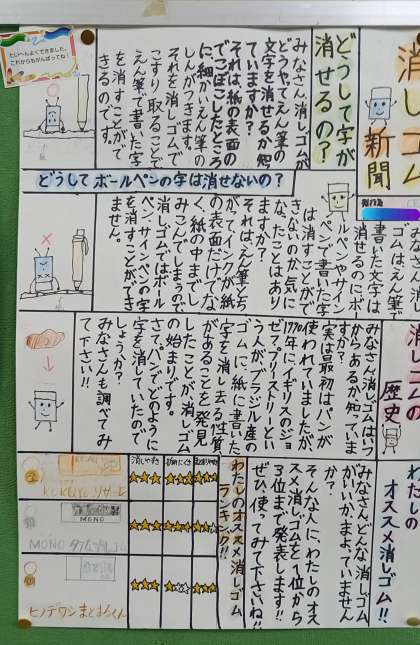 消しゴム
新聞
どうして字が
消せるの？
みなさん、消しゴムが
どうやてえん筆の
文字を消せるか知
ていますか？
それは紙の表面の
でこぼこしたところ
に、細かいえん筆の
しんがつきます。
それを消しゴムで
こすり取ることで
えん筆で書いた字
を消すことがで
きるのです。
たいへんよくできました。
これからもがんばってね！
どうしてボールペンの字は消せないの？
みなさん、消し
ゴムはえん筆で
書いた文字は
消せるのにボー
ルペンやサイン
ペンで書いた字
は消すことがで
きないのか気に
なったことはあり
ますか？
それは、えん筆とち
がってインクが紙
の表面だけでな
く、紙の中までし
みこんでしまうので
消しゴムではボール
ペン、サインペンの字は消せ
ません。
消しゴムの
歴史
みなさん消しゴムはいつ
からあるか知っていま
すか？
実は最初はパンが
使われていましたが、
1770年にイギリスのジョ
セフ・プリーストリーとい
う人が、ブラジル産の
ゴムに、紙に書いた
字を消し去る性質
があることを発見
したことが消しゴム
の始まりです。
さて、パンでどのように
字を消していたので
しょうか？
みなさんも調べてみ
て下さい!!
わたしの
オススメ消しゴム!!
みなさんどんな消しゴム
がいいか、まよっていません
か？
そんな人に、わたしのオス
スメ消しゴムを1位から
3位まで、発表します!!
ぜひ使ってみて下さいね!!
わたしのオススメ消しゴム
ランキング!!
消しやすさ
★★★
★★★
★★★
★★★
★★★
★★★
KOKUYO リサーレ
MONO
MONO
ヒノデワシ まとまるくん